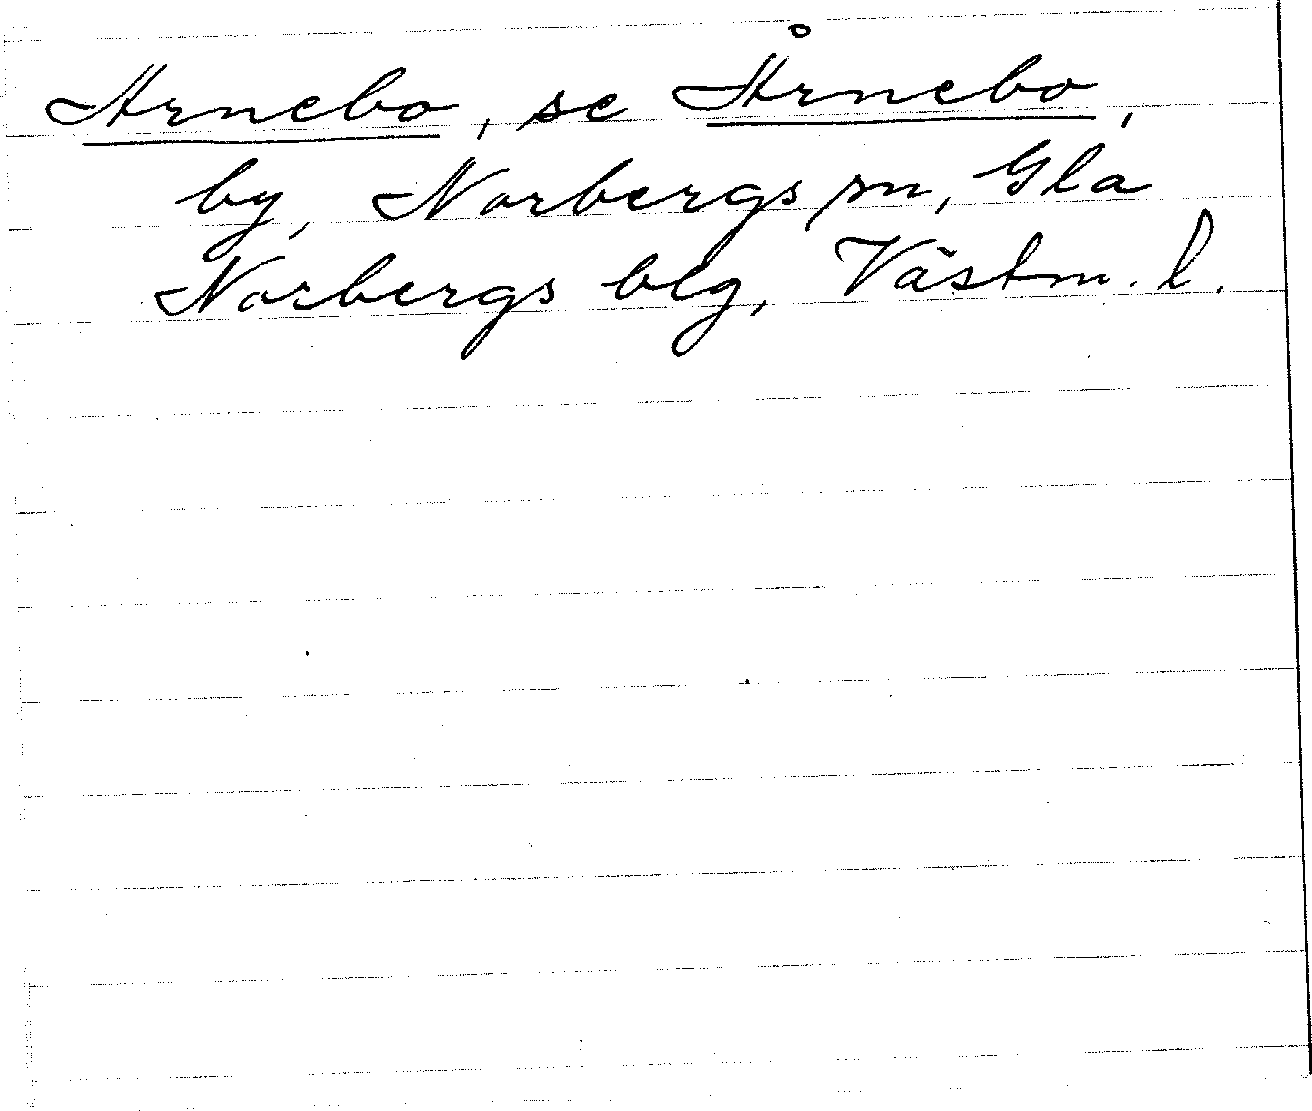 Arnebo, se Årnebo,
by, Norbergs sn, Gla
Norbergs blg, Västm. l.